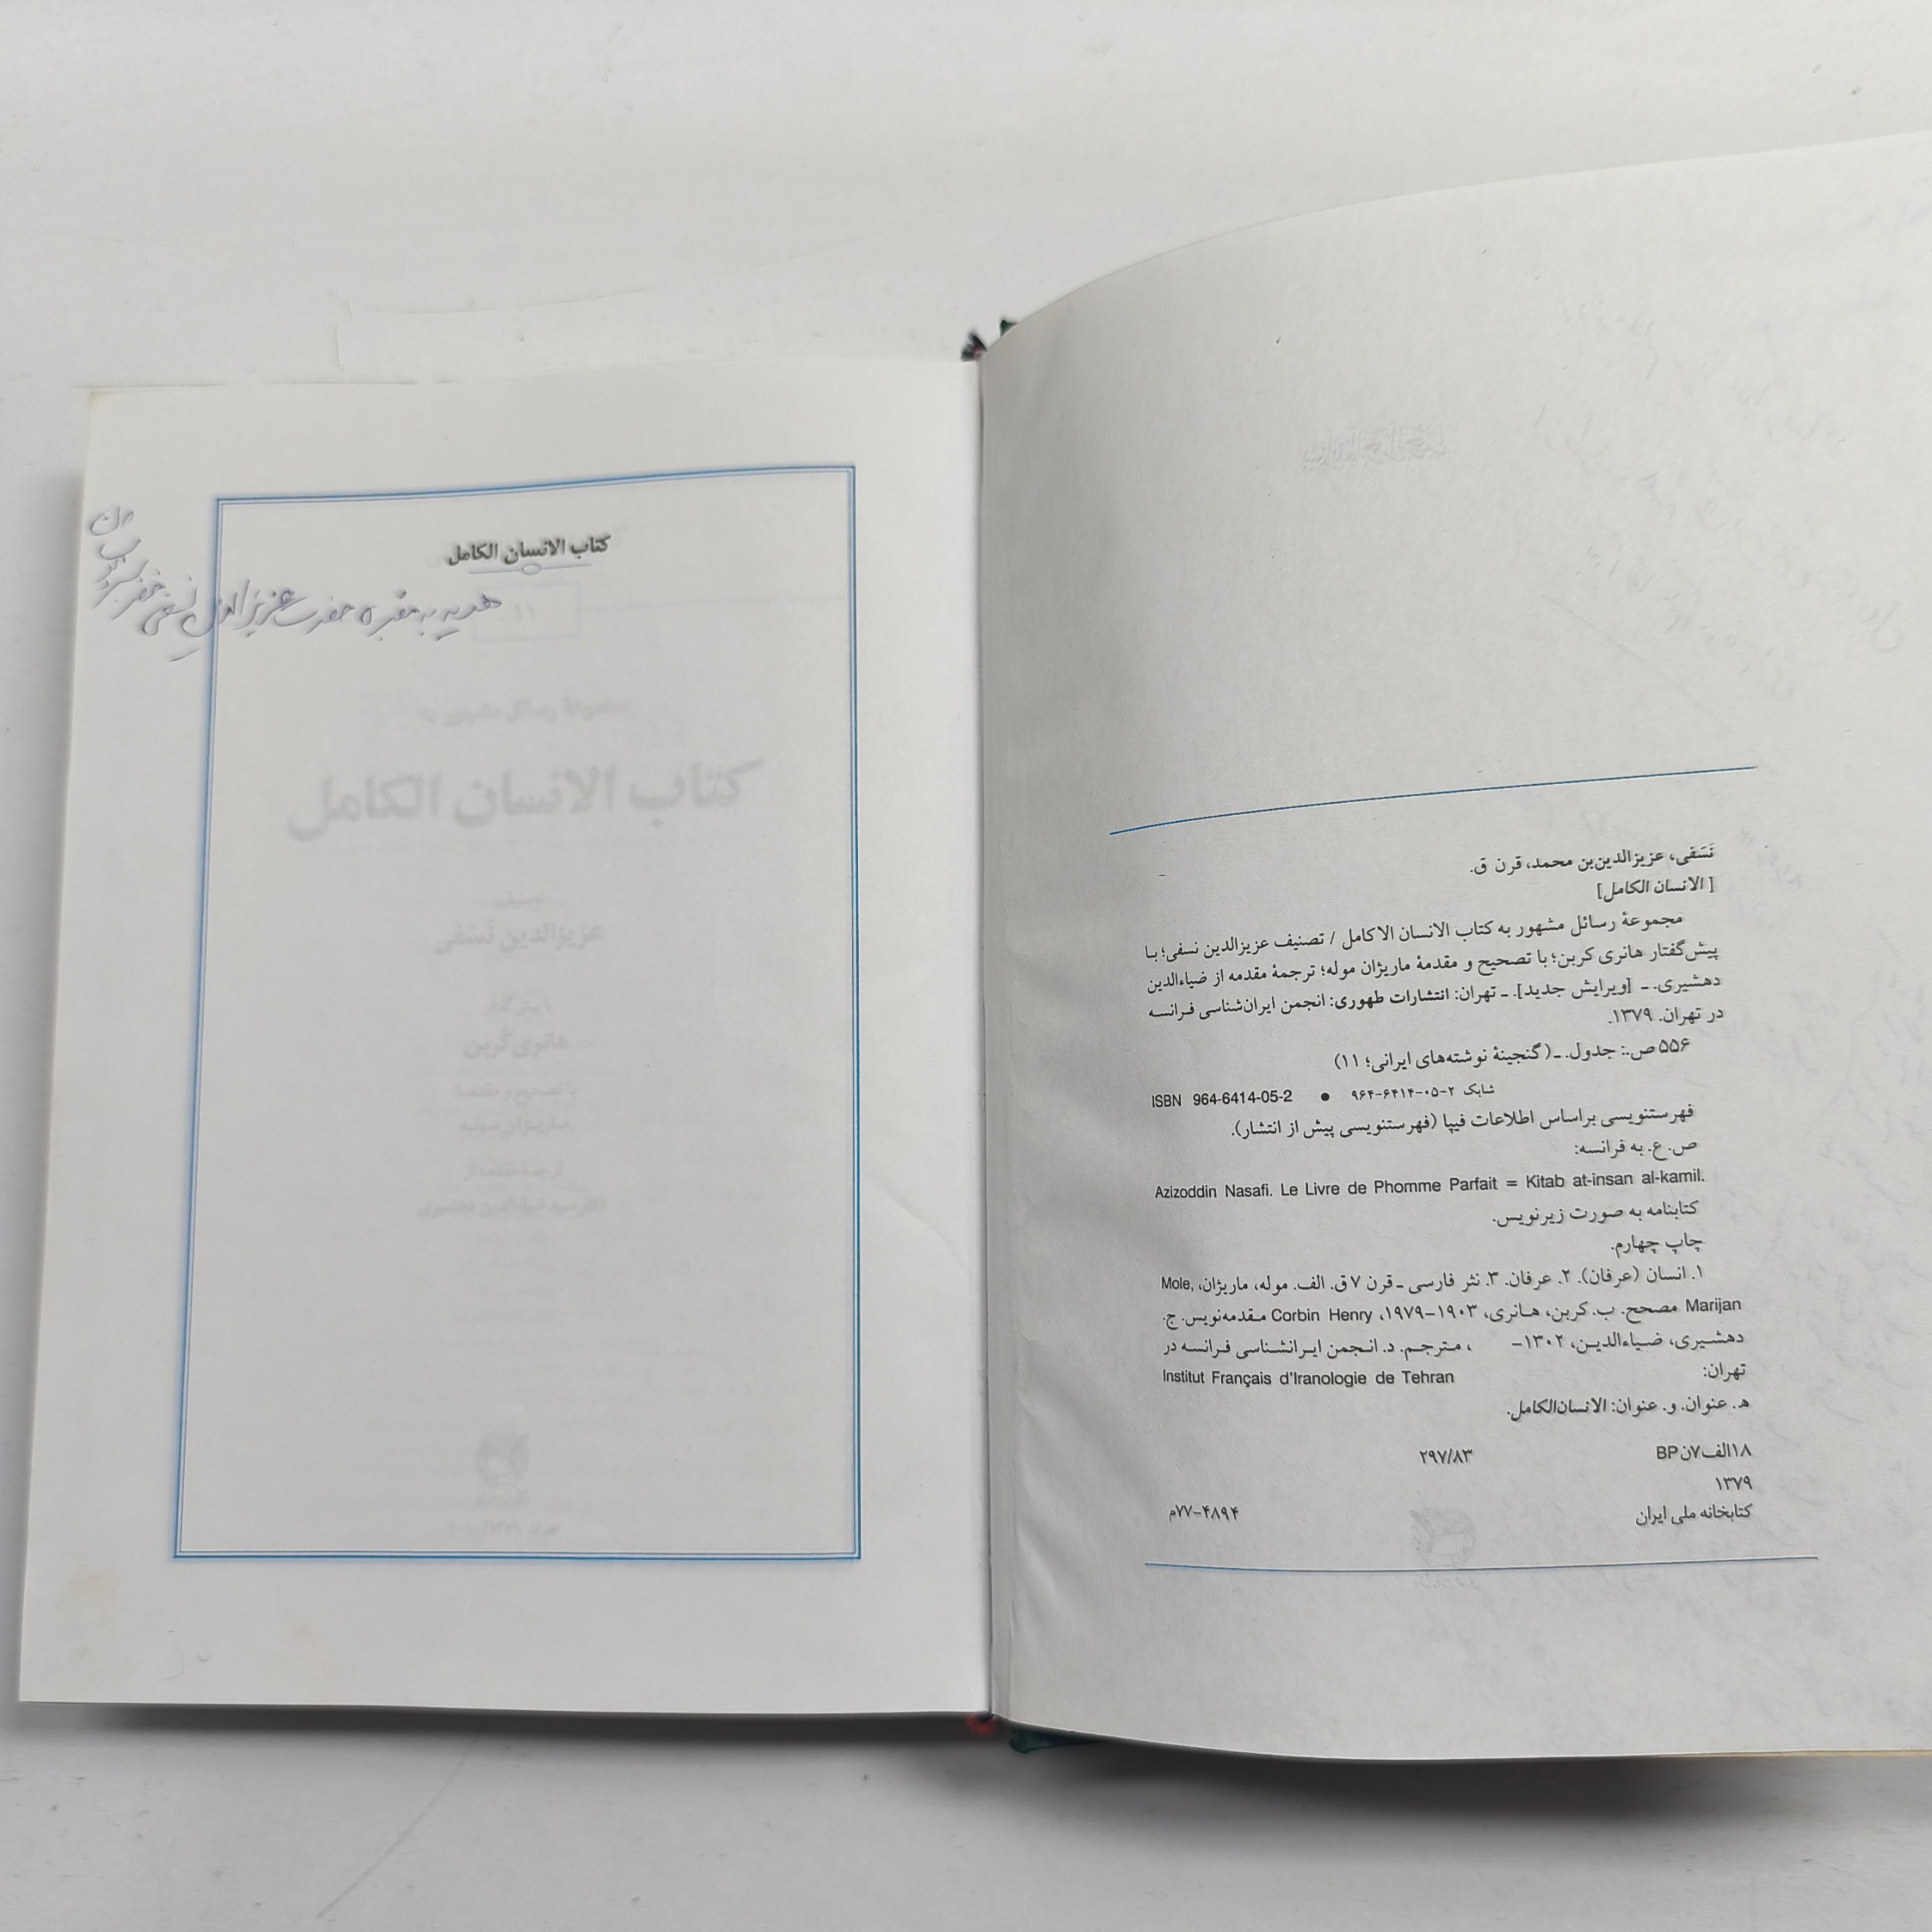 نَسَفی، عزیزالدین‌بن محمد، قرن ق.
[ الانسان الکامل]
مجموعهٔ رسائل مشهور به کتاب الانسان الاکامل / تصنیف عزیزالدین نسفی؛ با
پیش‌گفتار هانری کربن؛ با تصحیح و مقدمهٔ ماریژان موله؛ ترجمهٔ مقدمه از ضیاءالدین
دهشیری. ـ [ویرایش جدید]. ـ تهران: انتشارات طهوری: انجمن ایران‌شناسی فرانسه
در تهران. ۱۳۷۹.
۵۵۶ ص.: جدول. ـ( گنجینهٔ نوشته‌های ایرانی؛ ۱۱)
شابک ۲-۰۵-۶۴۱۴-۹۶۴ ● ISBN 964-6414-05-2
فهرستنویسی براساس اطلاعات فیپا (فهرستنویسی پیش از انتشار).
ص. ع. به فرانسه:
Azizoddin Nasafi. Le Livre de Phomme Parfait = Kitab at-insan al-kamil.
کتابنامه به صورت زیرنویس.
چاپ چهارم.
۱. انسان (عرفان). ۲. عرفان. ۳. نثر فارسی ـ قرن ۷ ق. الف. موله، ماریژان، Mole,
Marijan مصحح. ب. کربن، هانری، ۱۹۰۳-۱۹۷۹، Corbin Henry مقدمه‌نویس. ج.
دهشیری، ضیاءالدین، ۱۳۰۲- ، مترجم. د. انجمن ایرانشناسی فرانسه در
تهران: Institut Français d'Iranologie de Tehran
ه‍. عنوان. و. عنوان: الانسان‌الکامل.
۱۸الف۷ن BP ۲۹۷/۸۳
۱۳۷۹
کتابخانه ملی ایران ۴۸۹۴-۷۷م
کتاب الانسان الکامل
هدیه به مقبره حضرت عزیزالدین نسفی
کتاب الانسان الکامل
عزیزالدین نَسَفی
هانری کُربن